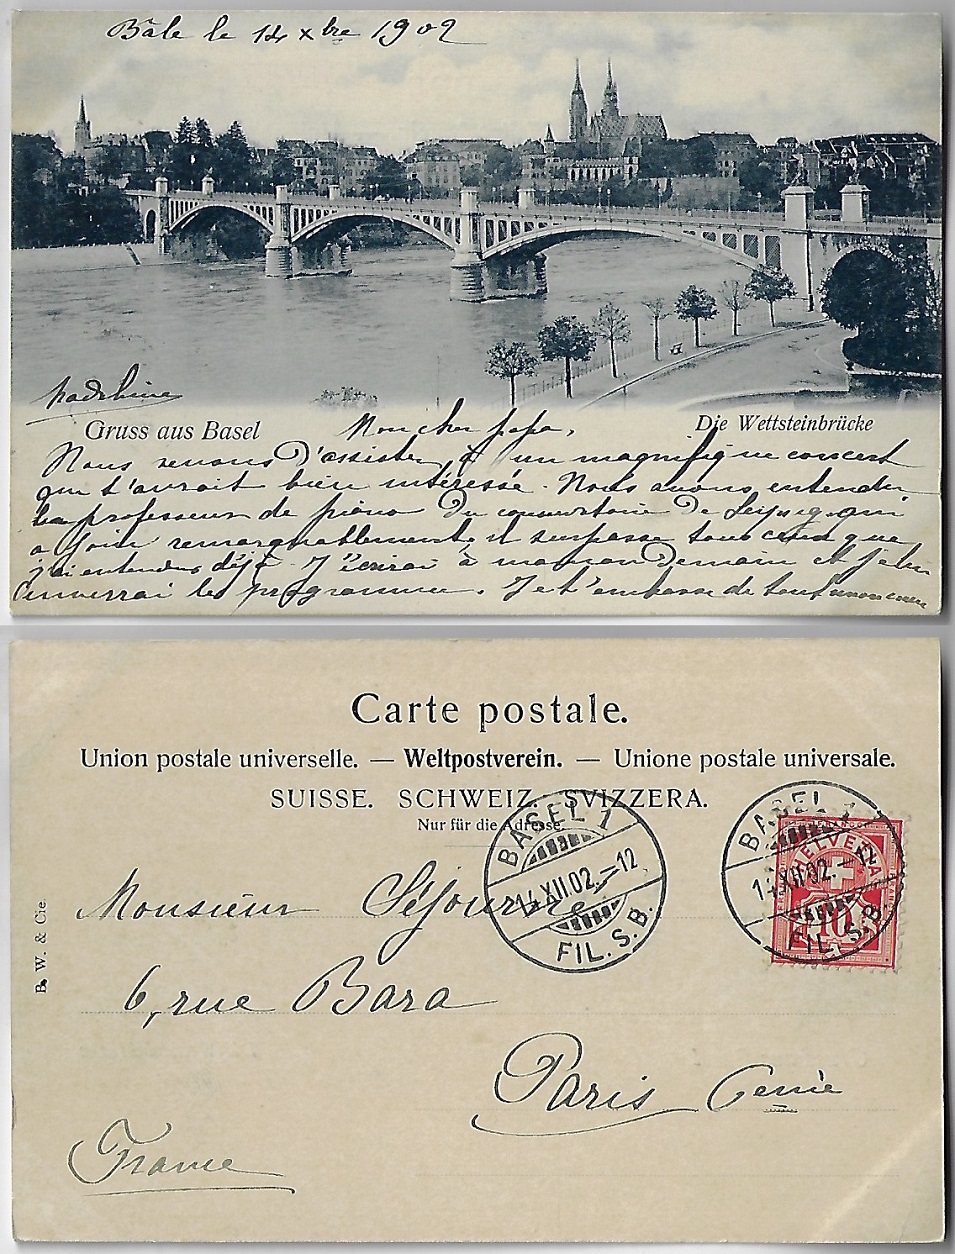 Bâle le 14 xbre 1902
Madeleine
Gruss aus Basel
Die Wettsteinbrücke
Mon cher papa,
Nous venons d'assister à un magnifique concert
qui t'aurait bien intéressé. Nous avons entendu
le professeur de piano du conservatoire de Leipzig qui
a joué remarquablement, il surpasse tous ceux que
j'ai entendus déjà. J'écrirai à maman demain et je lui
enverrai le programme. Je t'embrasse de tout mon cœur
Carte postale.
Union postale universelle. — Weltpostverein. — Unione postale universale.
SUISSE. SCHWEIZ. SVIZZERA.
Nur für die Adresse.
BASEL 1
14.XII.02.–12
FIL. S. B.
BASEL 1
14.XII.02.–12
FIL. S. B.
HELVETIA
10
Monsieur Séjourné
6, rue Bara
Paris 6eme
France
B. W. & Cie